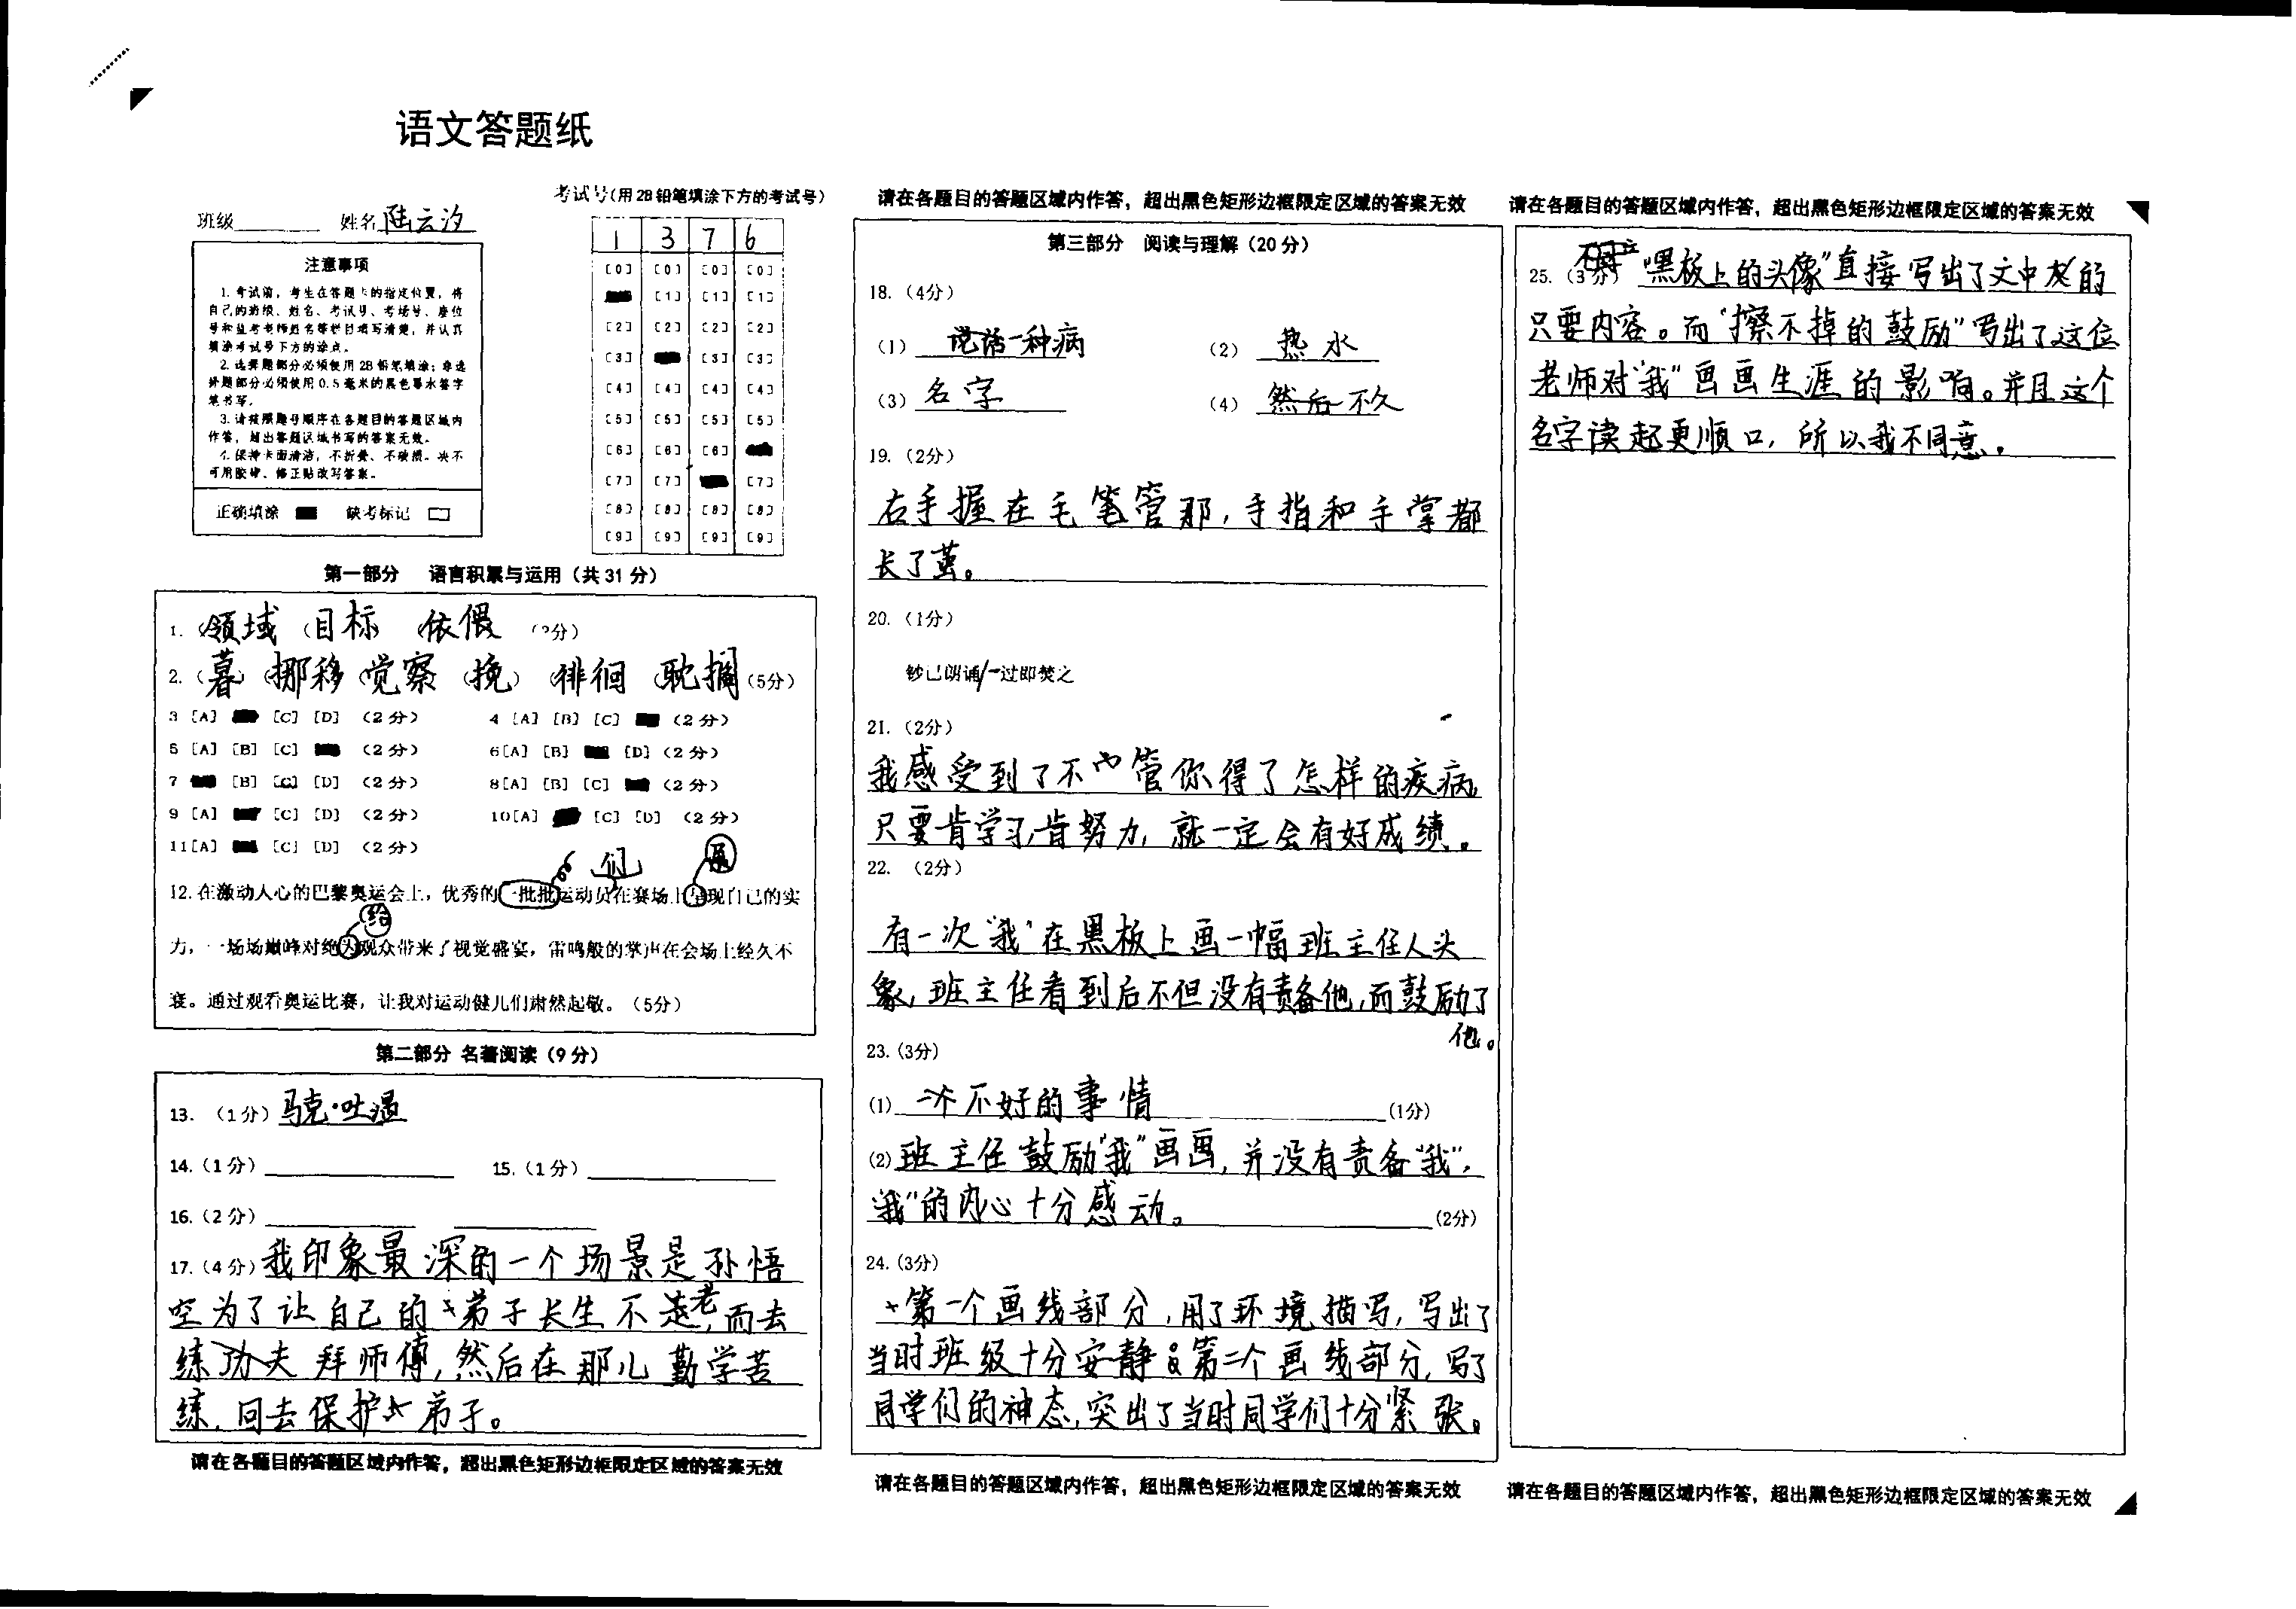 语文答题纸
班级 姓名 陆云汐
考试号(用2B铅笔填涂下方的考试号)
1 3 7 6
注意事项
1.考试前，考生在答题卡的指定位置，将
自己的班级、姓名、考试号、考场号、座位
号和监考老师姓名等栏目填写清楚，并认真
填涂考试号下方的涂点。
2.选择题部分必须使用2B铅笔填涂；非选
择题部分必须使用0.5毫米的黑色墨水签字
笔书写。
3.请按照题号顺序在各题目的答题区域内
作答，超出答题区域书写的答案无效。
4.保持卡面清洁，不折叠、不破损。决不
可用胶带、修正贴改写答案。
正确填涂 缺考标记
[0] [0] [0] [0]
[1] [1] [1]
[2] [2] [2] [2]
[3] [3] [3]
[4] [4] [4] [4]
[5] [5] [5] [5]
[6] [6] [6]
[7] [7] [7]
[8] [8] [8] [8]
[9] [9] [9] [9]
第一部分 语言积累与运用（共31分）
1.（领域 （目标 （依偎 （3分）
2.（暮）（挪移 （觉察 （挽）（徘徊 （耽搁（5分）
3 [A] [C] [D] （2分） 4 [A] [B] [C] （2分）
5 [A] [B] [C] （2分） 6[A] [B] [D]（2分）
7 [B] [C] [D] （2分） 8[A] [B] [C] （2分）
9 [A] [C] [D] （2分） 10[A] [C] [D] （2分）
11[A] [C] [D] （2分）
们
12.在激动人心的巴黎奥运会上，优秀的一批批运动员在赛场上呈现自己的实
给
力，一场场巅峰对绝为观众带来了视觉盛宴，雷鸣般的掌声在会场上经久不
衰。通过观看奥运比赛，让我对运动健儿们肃然起敬。（5分）
第二部分 名著阅读（9分）
13.（1分）马克·吐温
14.（1分） 15.（1分）
16.（2分）
17.（4分）我印象最深的一个场景是孙悟
空为了让自己的弟子长生不老,而去
练功夫拜师傅,然后在那儿勤学苦
练,回去保护弟子。
请在各题目的答题区域内作答，超出黑色矩形边框限定区域的答案无效
请在各题目的答题区域内作答，超出黑色矩形边框限定区域的答案无效
第三部分 阅读与理解（20分）
18.（4分）
（1）说话一种病 （2）热水
（3）名字 （4）然后不久
19.（2分）
右手握在毛笔管那,手指和手掌都
长了茧。
20.（1分）
钞已朗诵/一过即焚之
21.（2分）
我感受到了不管你得了怎样的疾病,
只要肯学习,肯努力,就一定会有好成绩。
22.（2分）
有一次“我”在黑板上画一幅班主任人头
象,班主任看到后不但没有责备他,而鼓励了
他。
23.（3分）
（1）一个不好的事情（1分）
（2）班主任鼓励“我”画画,并没有责备“我”,
“我”的内心十分感动。（2分）
24.（3分）
第一个画线部分,用了环境描写,写出了
当时班级十分安静。第二个画线部分,写了
同学们的神态,突出了当时同学们十分紧张。
请在各题目的答题区域内作答，超出黑色矩形边框限定区域的答案无效
请在各题目的答题区域内作答，超出黑色矩形边框限定区域的答案无效
25.（3分）“黑板上的头像”直接写出了文中的
只要内容。而“擦不掉的鼓励”写出了这位
老师对“我”画画生涯的影响。并且这个
名字读起更顺口,所以我不同意。
请在各题目的答题区域内作答，超出黑色矩形边框限定区域的答案无效